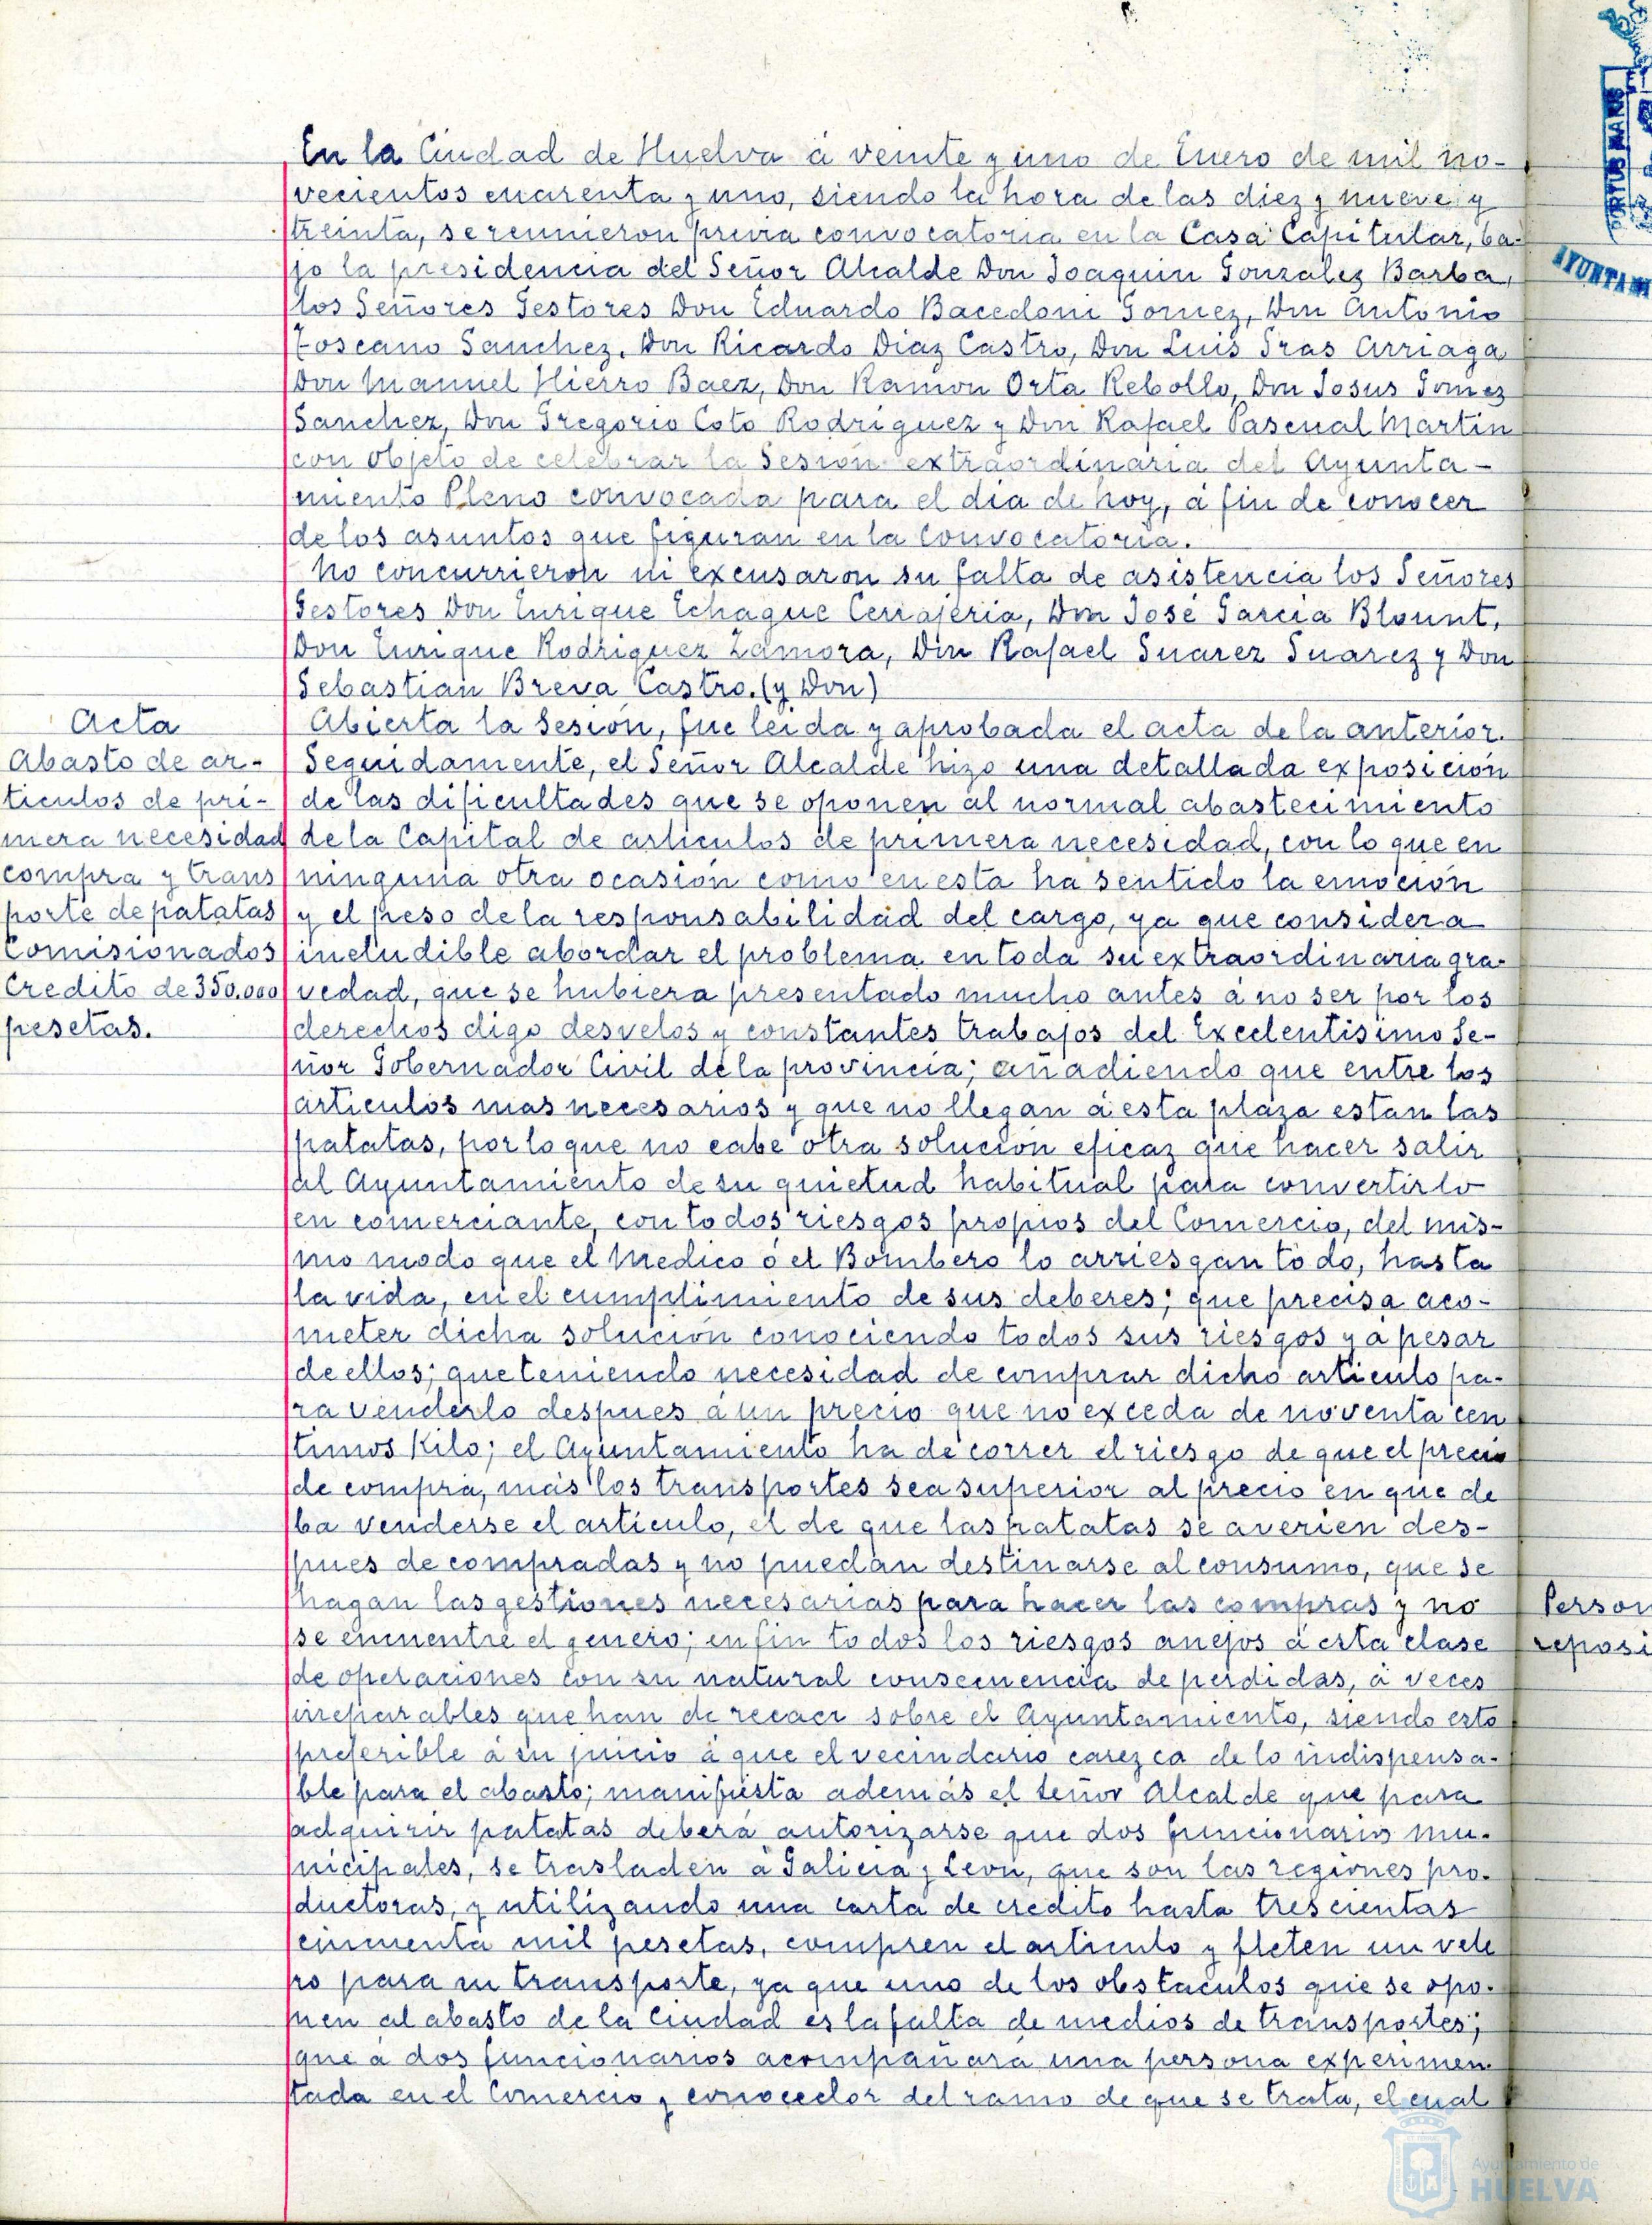 En la Ciudad de Huelva á veinte y uno de Enero de mil no-
vecientos cuarenta y uno, siendo la hora de las diez y nueve y
treinta, se reunieron previa convocatoria en la Casa Capitular, ba-
jo la presidencia del Señor Alcalde Don Joaquin Gonzalez Barba,
los Señores Gestores Don Eduardo Bacedoni Gomez, Don Antonio
Toscano Sanchez, Don Ricardo Diaz Castro, Don Luis Tras Arriaga
Don Manuel Hierro Baez, Don Ramon Orta Rebollo, Don Josus Gomez
Sanchez, Don Gregorio Coto Rodriguez y Don Rafael Pascual Martin
con objeto de celebrar la Sesión extraordinaria del Ayunta-
miento Pleno convocada para el dia de hoy, á fin de conocer
de los asuntos que figuran en la Convocatoria.
No concurrieron ni excusaron su falta de asistencia los Señores
Gestores Don Enrique Echague Cerrajeria, Don José Garcia Blount,
Don Enrique Rodriguez Zamora, Don Rafael Suarez Suarez y Don
Sebastian Breva Castro. (y Don)
Acta
Abasto de ar-
ticulos de pri-
mera necesidad
compra y trans
porte de patatas
Comisionados
Credito de 350.000
pesetas.
Abierta la Sesión, fue leida y aprobada el acta de la anterior.
Seguidamente, el Señor Alcalde hizo una detallada exposición
de las dificultades que se oponen al normal abastecimiento
de la Capital de articulos de primera necesidad, con lo que en
ninguna otra ocasión como en esta ha sentido la emoción
y el peso de la responsabilidad del cargo, ya que considera
ineludible abordar el problema en toda su extraordinaria gra-
vedad, que se hubiera presentado mucho antes á no ser por los
derechos digo desvelos y constantes trabajos del Excelentisimo Se-
ñor Gobernador Civil de la provincia; añadiendo que entre los
articulos mas necesarios y que no llegan á esta plaza estan las
patatas, por lo que no cabe otra solución eficaz que hacer salir
al Ayuntamiento de su quietud habitual para convertirlo
en comerciante, con todos riesgos propios del Comercio, del mis-
mo modo que el Medico ó el Bombero lo arriesgan todo, hasta
la vida, en el cumplimiento de sus deberes; que precisa aco-
meter dicha solución conociendo todos sus riesgos y á pesar
de ellos; que teniendo necesidad de comprar dicho articulo pa-
ra venderlo despues á un precio que no exceda de noventa cen
timos Kilo; el Ayuntamiento ha de correr el riesgo de que el precio
de compra, más los transportes sea superior al precio en que de
ba venderse el articulo, el de que las patatas se averien des-
pues de compradas y no puedan destinarse al consumo, que se
hagan las gestiones necesarias para hacer las compras y no
se encuentre el genero; en fin todos los riesgos anejos á esta clase
de operaciones con su natural consecuencia de perdidas, á veces
irreparables que han de recaer sobre el Ayuntamiento, siendo esto
preferible á su juicio á que el vecindario carezca de lo indispensa-
ble para el abasto; manifiesta además el señor Alcalde que para
adquirir patatas deberá autorizarse que dos funcionarios mu-
nicipales, se trasladen á Galicia y Leon, que son las regiones pro-
ductoras, y utilizando una carta de credito hasta trescientas
cincuenta mil pesetas, compren el articulo y fleten un vele
ro para su transporte, ya que uno de los obstaculos que se opo-
nen al abasto de la Ciudad es la falta de medios de transportes;
que á dos funcionarios acompañara una persona experimen-
tada en el Comercio y conocedor del ramo de que se trata, el cual
PORTUS MARIS
AYUNTAM
Person
reposi
Ayuntamiento de
HUELVA